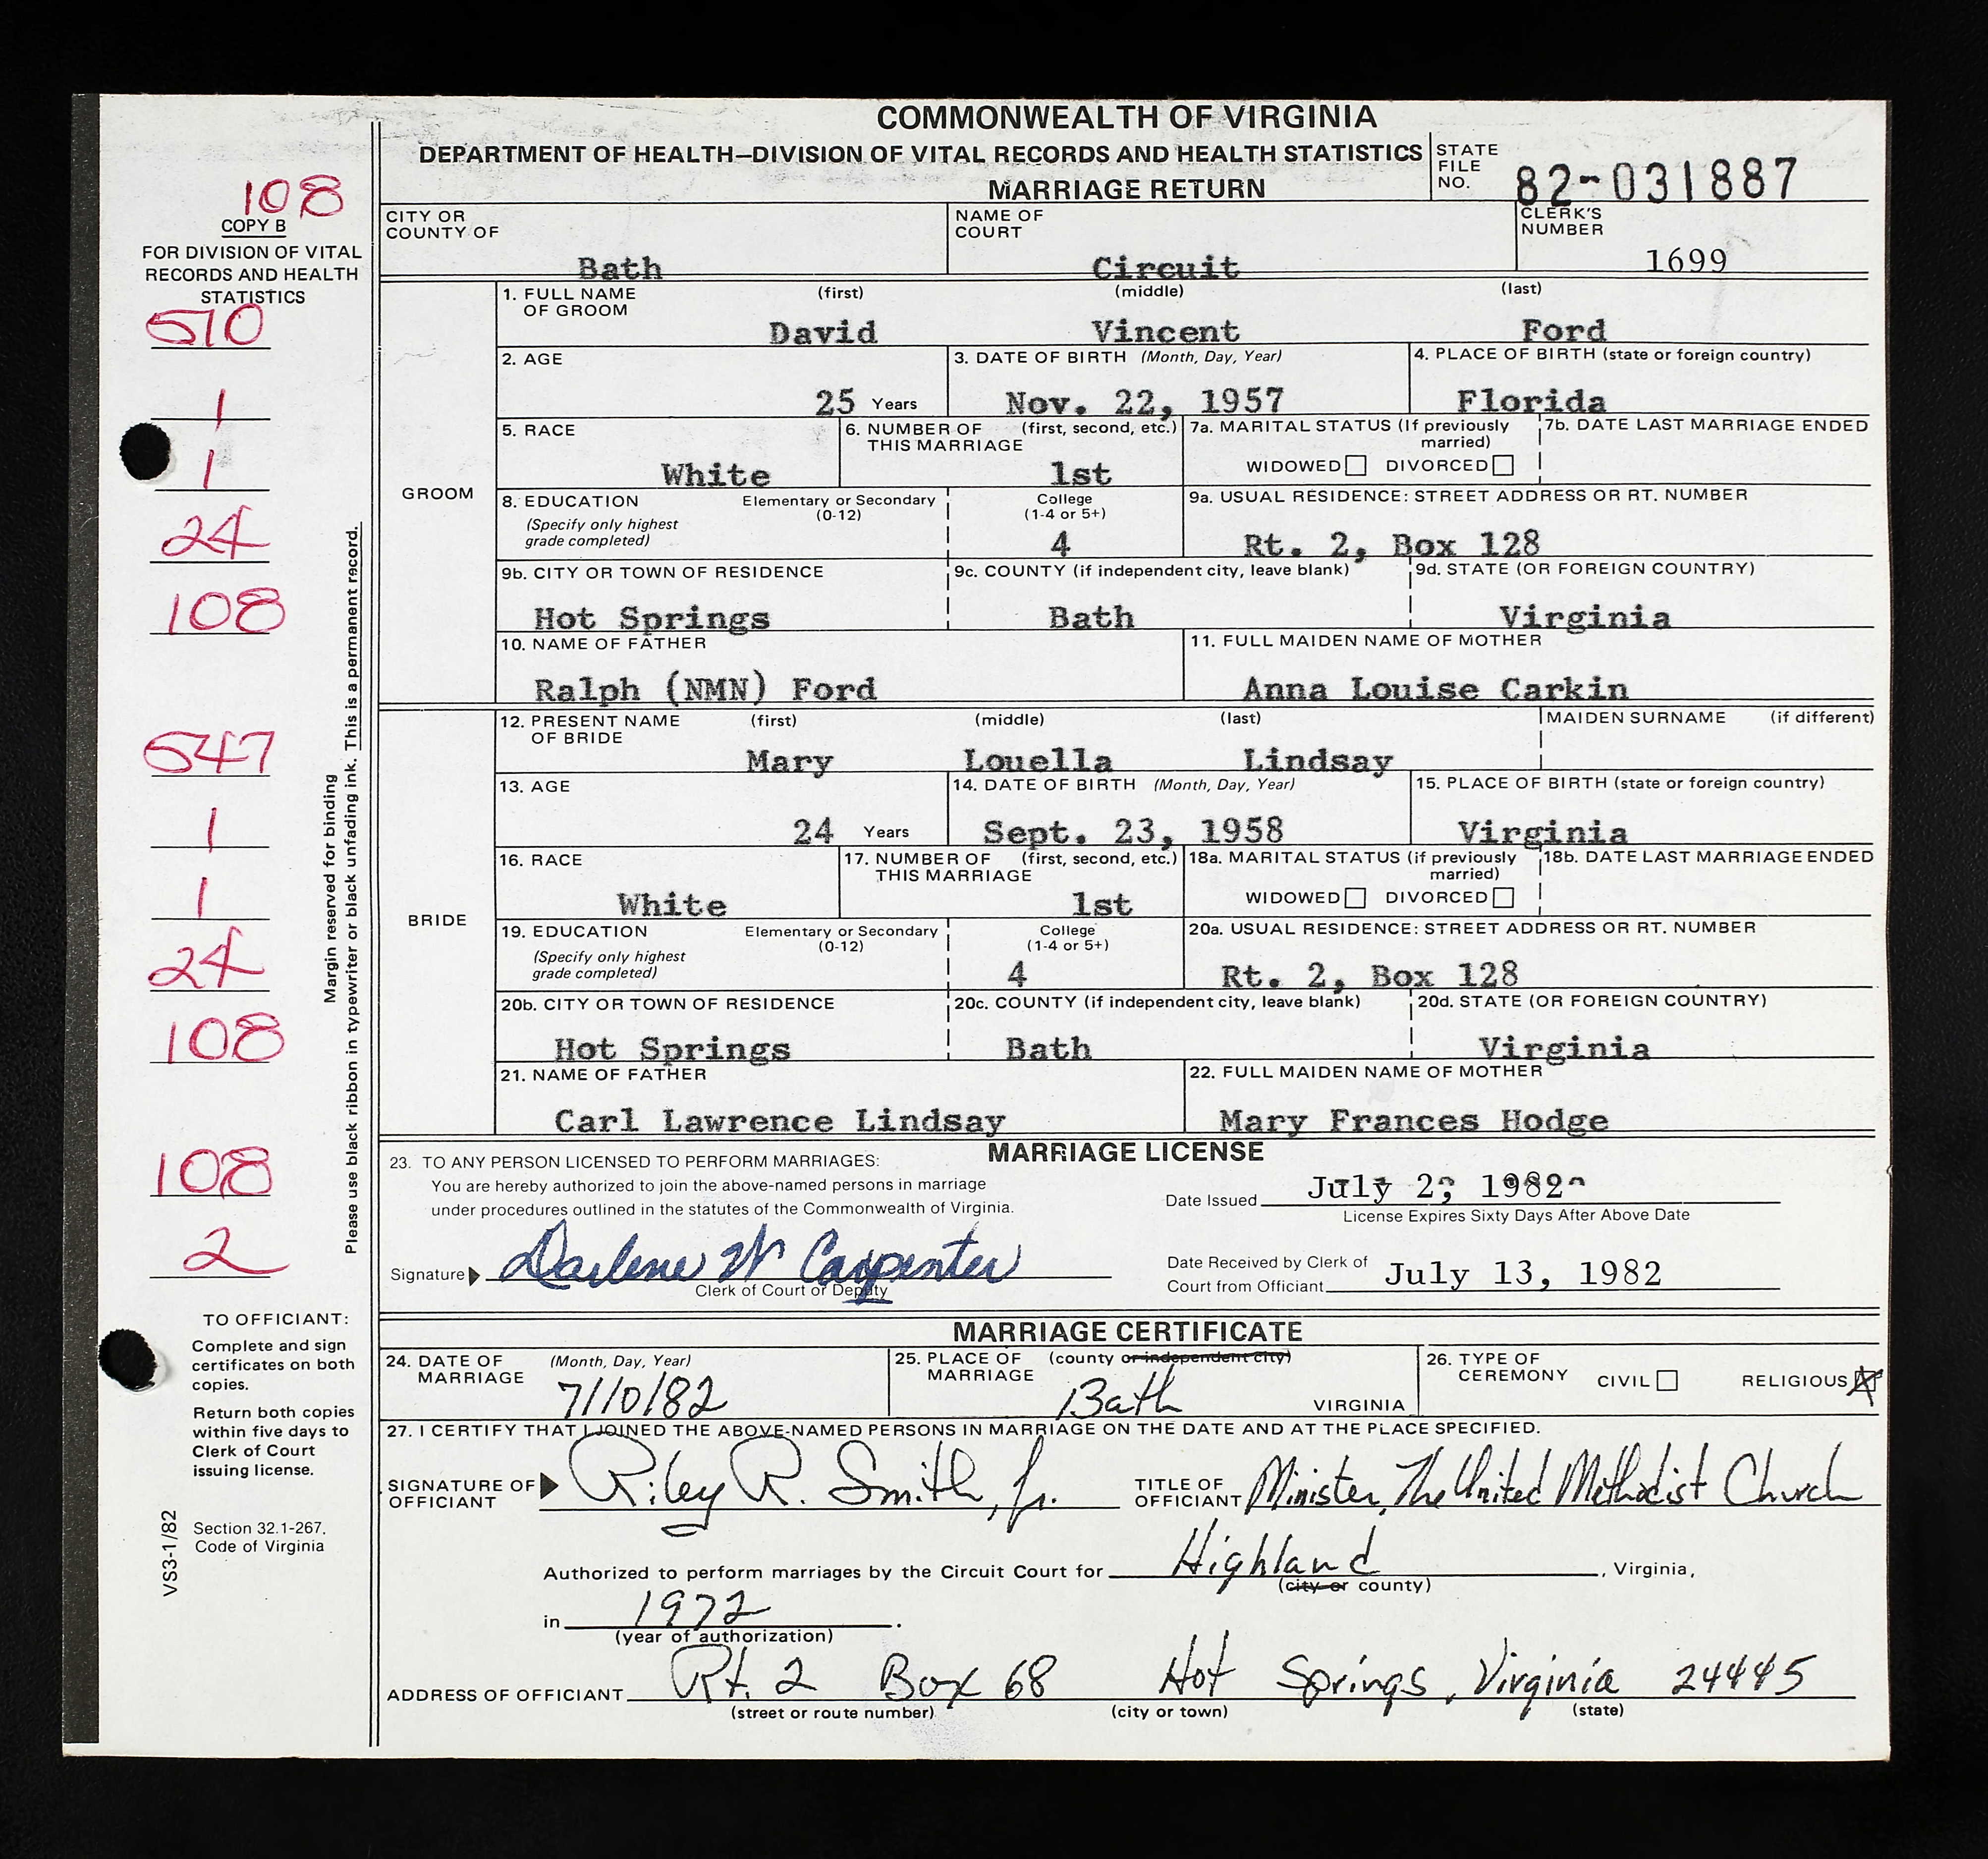 COMMONWEALTH OF VIRGINIA
DEPARTMENT OF HEALTH—DIVISION OF VITAL RECORDS AND HEALTH STATISTICS
MARRIAGE RETURN
STATE FILE NO. 82-031887
108
COPY B
FOR DIVISION OF VITAL
RECORDS AND HEALTH
STATISTICS
570
1
1
24
108
547
1
1
24
108
108
2
Margin reserved for binding
Please use black ribbon in typewriter or black unfading ink. This is a permanent record.
TO OFFICIANT:
Complete and sign
certificates on both
copies.
Return both copies
within five days to
Clerk of Court
issuing license.
Section 32.1-267,
Code of Virginia
VS3-1/82
CITY OR COUNTY OF Bath
NAME OF COURT Circuit
CLERK'S NUMBER 1699
GROOM
1. FULL NAME OF GROOM (first) (middle) (last)
David Vincent Ford
2. AGE 25 Years
3. DATE OF BIRTH (Month, Day, Year) Nov. 22, 1957
4. PLACE OF BIRTH (state or foreign country) Florida
5. RACE White
6. NUMBER OF THIS MARRIAGE (first, second, etc.) 1st
7a. MARITAL STATUS (If previously married) WIDOWED DIVORCED
7b. DATE LAST MARRIAGE ENDED
8. EDUCATION (Specify only highest grade completed) Elementary or Secondary (0-12) College (1-4 or 5+) 4
9a. USUAL RESIDENCE: STREET ADDRESS OR RT. NUMBER Rt. 2, Box 128
9b. CITY OR TOWN OF RESIDENCE Hot Springs
9c. COUNTY (if independent city, leave blank) Bath
9d. STATE (OR FOREIGN COUNTRY) Virginia
10. NAME OF FATHER Ralph (NMN) Ford
11. FULL MAIDEN NAME OF MOTHER Anna Louise Carkin
BRIDE
12. PRESENT NAME OF BRIDE (first) (middle) (last) MAIDEN SURNAME (if different)
Mary Louella Lindsay
13. AGE 24 Years
14. DATE OF BIRTH (Month, Day, Year) Sept. 23, 1958
15. PLACE OF BIRTH (state or foreign country) Virginia
16. RACE White
17. NUMBER OF THIS MARRIAGE (first, second, etc.) 1st
18a. MARITAL STATUS (if previously married) WIDOWED DIVORCED
18b. DATE LAST MARRIAGE ENDED
19. EDUCATION (Specify only highest grade completed) Elementary or Secondary (0-12) College (1-4 or 5+) 4
20a. USUAL RESIDENCE: STREET ADDRESS OR RT. NUMBER Rt. 2, Box 128
20b. CITY OR TOWN OF RESIDENCE Hot Springs
20c. COUNTY (if independent city, leave blank) Bath
20d. STATE (OR FOREIGN COUNTRY) Virginia
21. NAME OF FATHER Carl Lawrence Lindsay
22. FULL MAIDEN NAME OF MOTHER Mary Frances Hodge
MARRIAGE LICENSE
23. TO ANY PERSON LICENSED TO PERFORM MARRIAGES:
You are hereby authorized to join the above-named persons in marriage
under procedures outlined in the statutes of the Commonwealth of Virginia.
Date Issued July 2, 1982
License Expires Sixty Days After Above Date
Signature Darlene W Carpenter
Clerk of Court or Deputy
Date Received by Clerk of
Court from Officiant July 13, 1982
MARRIAGE CERTIFICATE
24. DATE OF MARRIAGE (Month, Day, Year) 7/10/82
25. PLACE OF MARRIAGE (county or independent city) Bath VIRGINIA
26. TYPE OF CEREMONY CIVIL RELIGIOUS X
27. I CERTIFY THAT I JOINED THE ABOVE-NAMED PERSONS IN MARRIAGE ON THE DATE AND AT THE PLACE SPECIFIED.
SIGNATURE OF OFFICIANT Riley R. Smith, Jr.
TITLE OF OFFICIANT Minister, The United Methodist Church
Authorized to perform marriages by the Circuit Court for Highland, Virginia,
(city or county)
in 1972.
(year of authorization)
ADDRESS OF OFFICIANT Rt. 2 Box 68 Hot Springs, Virginia 24445
(street or route number) (city or town) (state)